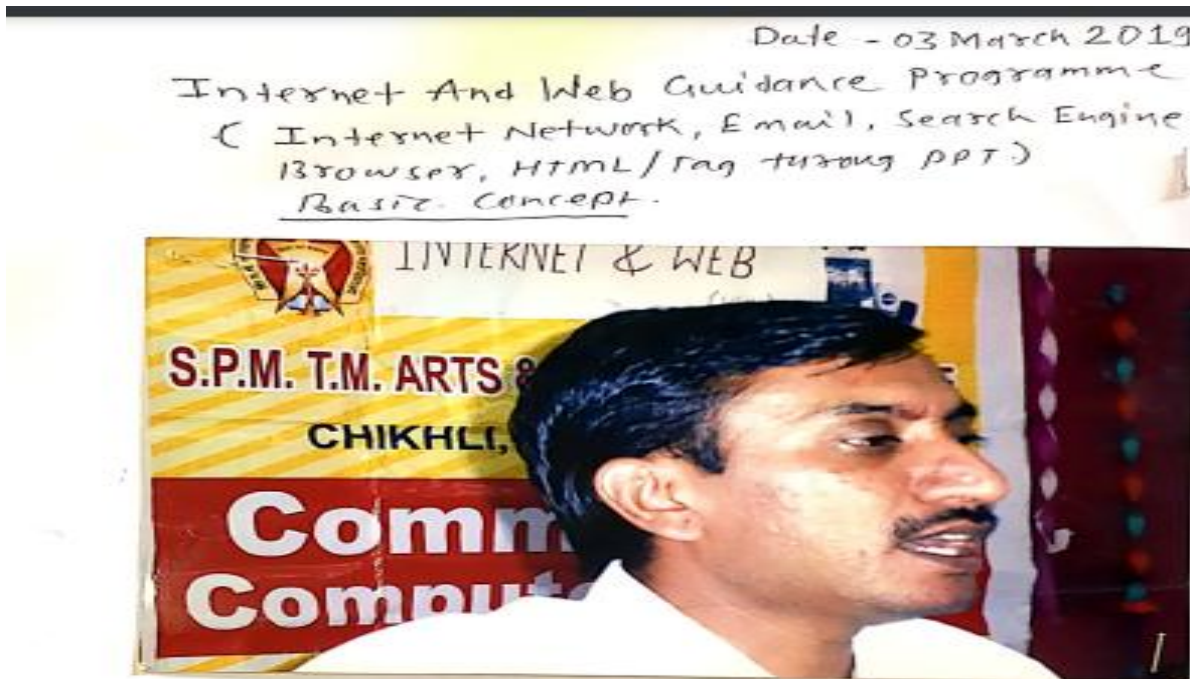 Date - 03 March 2019
Internet And Web Guidance Programme
( Internet Network, Email, Search Engine
Browser, HTML/Tag turoug PPT)
Basic Concept.
INTERNET & WEB
S.P.M. T.M. ARTS &
CHIKHLI,
Comm
Compute